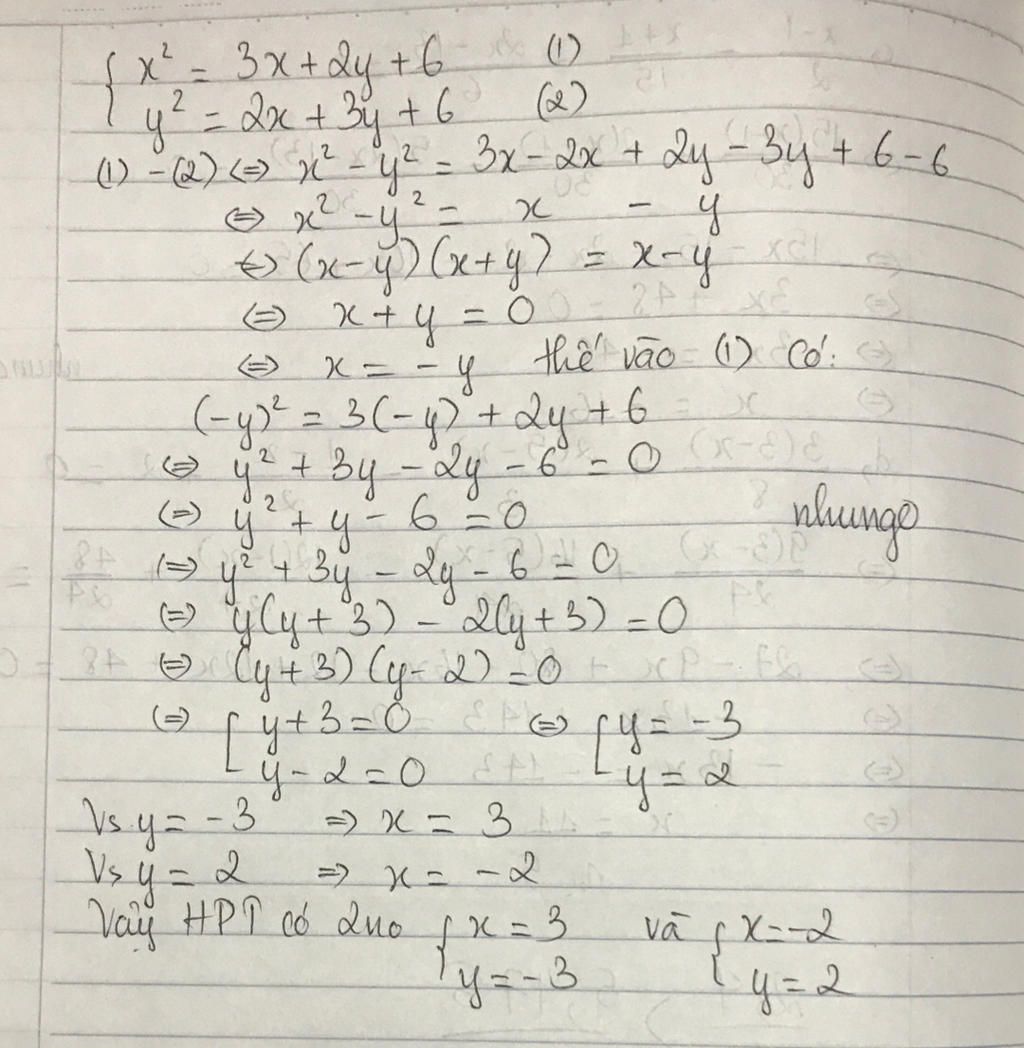 { x² = 3x + 2y + 6 (1)
y² = 2x + 3y + 6 (2)
(1) - (2) ⇔ x² - y² = 3x - 2x + 2y - 3y + 6 - 6
⇔ x² - y² = x - y
⇔ (x - y)(x + y) = x - y
⇔ x + y = 0
⇔ x = - y thế vào (1) có:
(-y)² = 3(-y) + 2y + 6
⇔ y² + 3y - 2y - 6 = 0
⇔ y² + y - 6 = 0 nhungo
⇔ y² + 3y - 2y - 6 = 0
⇔ y(y + 3) - 2(y + 3) = 0
⇔ (y + 3)(y - 2) = 0
⇔ [ y + 3 = 0 ⇔ [ y = -3
y - 2 = 0 y = 2
Vs y = -3 ⇒ x = 3
Vs y = 2 ⇒ x = -2
Vậy HPT có 2 no { x = 3 và { x = -2
y = -3 y = 2